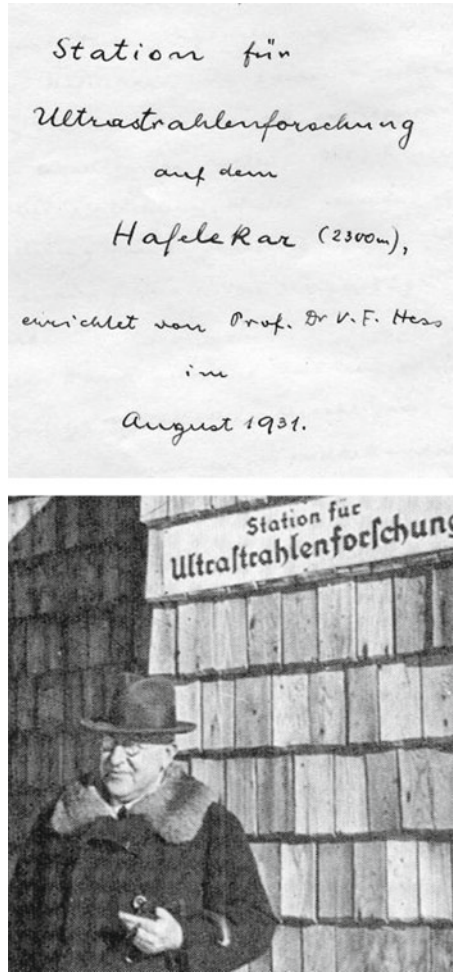 Station für
Ultrastrahlenforschung
auf dem
Hafelekar (2300m),
errichtet von Prof. Dr V. F. Hess
im
August 1931.
Station für
Ultraſtrahlenforſchung